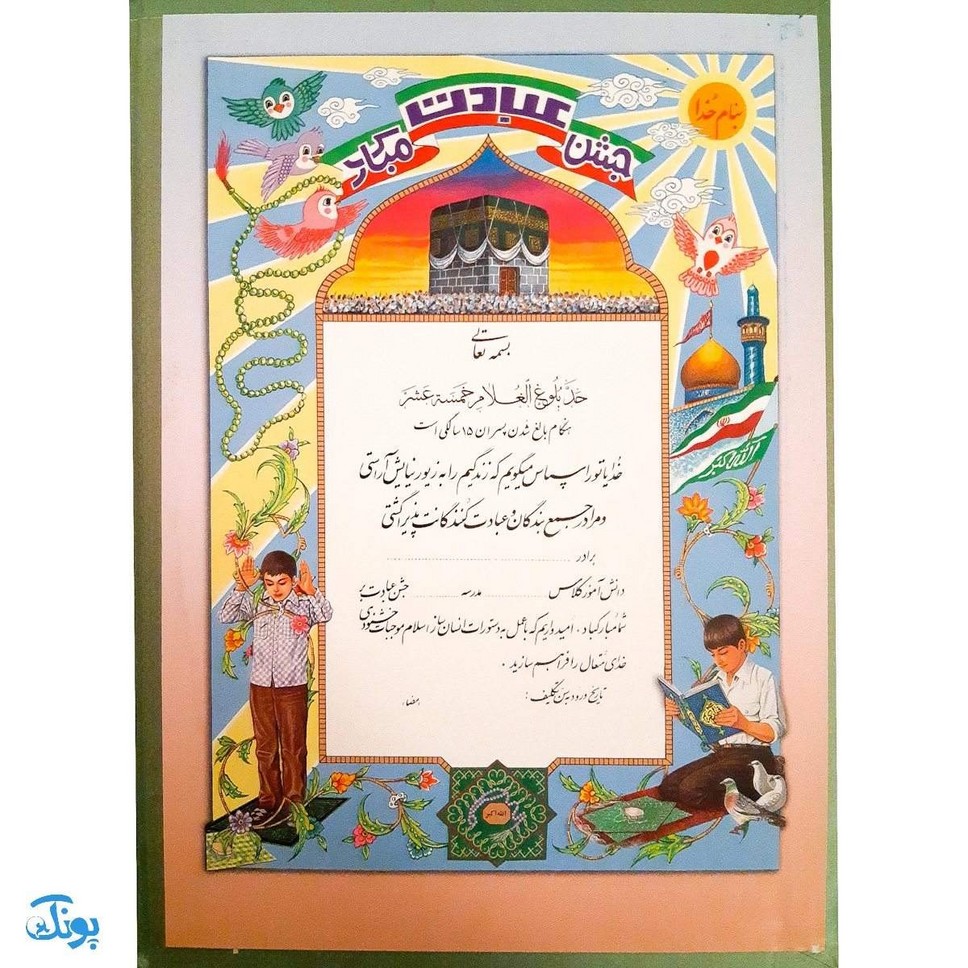 بنام خدا
جشن عبادت مبارک
بسمه تعالی
حَدُّ بُلُوغِ الْغُلامِ خَمْسَةَ عَشَرَ
هنگام بالغ شدن پسران ۱۵ سالگی است
خدایا تو را سپاس میگویم که زندگیم را به زیور نیایش آراستی
و مرا در جمع بندگان و عبادت کنندگانت پذیرا گشتی
برادر
دانش آموز کلاس مدرسه جشن عبادت بر
شما مبارکباد، امیدواریم که با عمل به دستورات انسان ساز اسلام موجبات خشنودی
خدای متعال را فراهم سازید.
تاریخ ورود به سن تکلیف: امضاء:
الله اکبر
الله اکبر
پونک